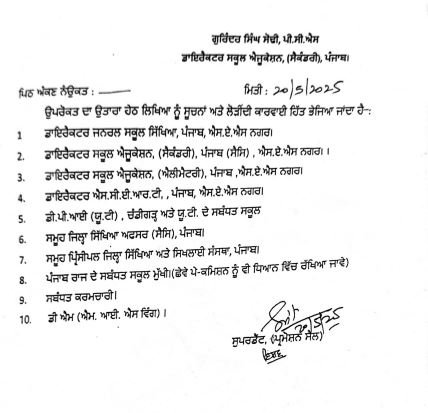 ਗੁਰਿੰਦਰ ਸਿੰਘ ਸੋਢੀ, ਪੀ.ਸੀ.ਐਸ
ਡਾਇਰੈਕਟਰ ਸਕੂਲ ਐਜੂਕੇਸ਼ਨ, (ਸੈਕੰਡਰੀ), ਪੰਜਾਬ।
ਪਿਠ ਅੰਕਣ ਨੰ:ਉਕਤ: ਮਿਤੀ: 20/5/2025
ਉਪਰੋਕਤ ਦਾ ਉਤਾਰਾ ਹੇਠ ਲਿਖਿਆ ਨੂੰ ਸੂਚਨਾਂ ਅਤੇ ਲੋੜੀਂਦੀ ਕਾਰਵਾਈ ਹਿੱਤ ਭੇਜਿਆ ਜਾਂਦਾ ਹੈ-:
1 ਡਾਇਰੈਕਟਰ ਜਨਰਲ ਸਕੂਲ ਸਿੱਖਿਆ, ਪੰਜਾਬ, ਐਸ.ਏ.ਐਸ ਨਗਰ।
2. ਡਾਇਰੈਕਟਰ ਸਕੂਲ ਐਜੂਕੇਸ਼ਨ, (ਸੈਕੰਡਰੀ), ਪੰਜਾਬ (ਸੈਸਿ) , ਐਸ.ਏ.ਐਸ ਨਗਰ। ।
3. ਡਾਇਰੈਕਟਰ ਸਕੂਲ ਐਜੂਕੇਸ਼ਨ, (ਐਲੀਮੈਂਟਰੀ), ਪੰਜਾਬ ,ਐਸ.ਏ.ਐਸ ਨਗਰ।
4. ਡਾਇਰੈਕਟਰ ਐਸ.ਸੀ.ਈ.ਆਰ.ਟੀ., , ਪੰਜਾਬ, ਐਸ.ਏ.ਐਸ ਨਗਰ।
5 . ਡੀ.ਪੀ.ਆਈ (ਯੂ.ਟੀ) , ਚੰਡੀਗੜ੍ਹ ਅਤੇ ਯੂ.ਟੀ. ਦੇ ਸਬੰਧਤ ਸਕੂਲ
6. ਸਮੂਹ ਜਿਲ੍ਹਾ ਸਿੱਖਿਆ ਅਫਸਰ (ਸੈਸਿ), ਪੰਜਾਬ।
7. ਸਮੂਹ ਪ੍ਰਿੰਸੀਪਲ ਜਿਲ੍ਹਾ ਸਿੱਖਿਆ ਅਤੇ ਸਿਖਲਾਈ ਸੰਸਥਾ, ਪੰਜਾਬ।
8. ਪੰਜਾਬ ਰਾਜ ਦੇ ਸਬੰਧਤ ਸਕੂਲ ਮੁੱਖੀ।(ਛੇਵੇ ਪੇ-ਕਮਿਸ਼ਨ ਨੂੰ ਵੀ ਧਿਆਨ ਵਿੱਚ ਰੱਖਿਆ ਜਾਵੇ)
9. ਸਬੰਧਤ ਕਰਮਚਾਰੀ।
10. ਡੀ ਐਮ (ਐਮ. ਆਈ. ਐਸ ਵਿੰਗ) ।
20/5/25
ਸੁਪਰਡੈਂਟ, (ਪ੍ਰਮੋਸ਼ਨ ਸੈੱਲ)